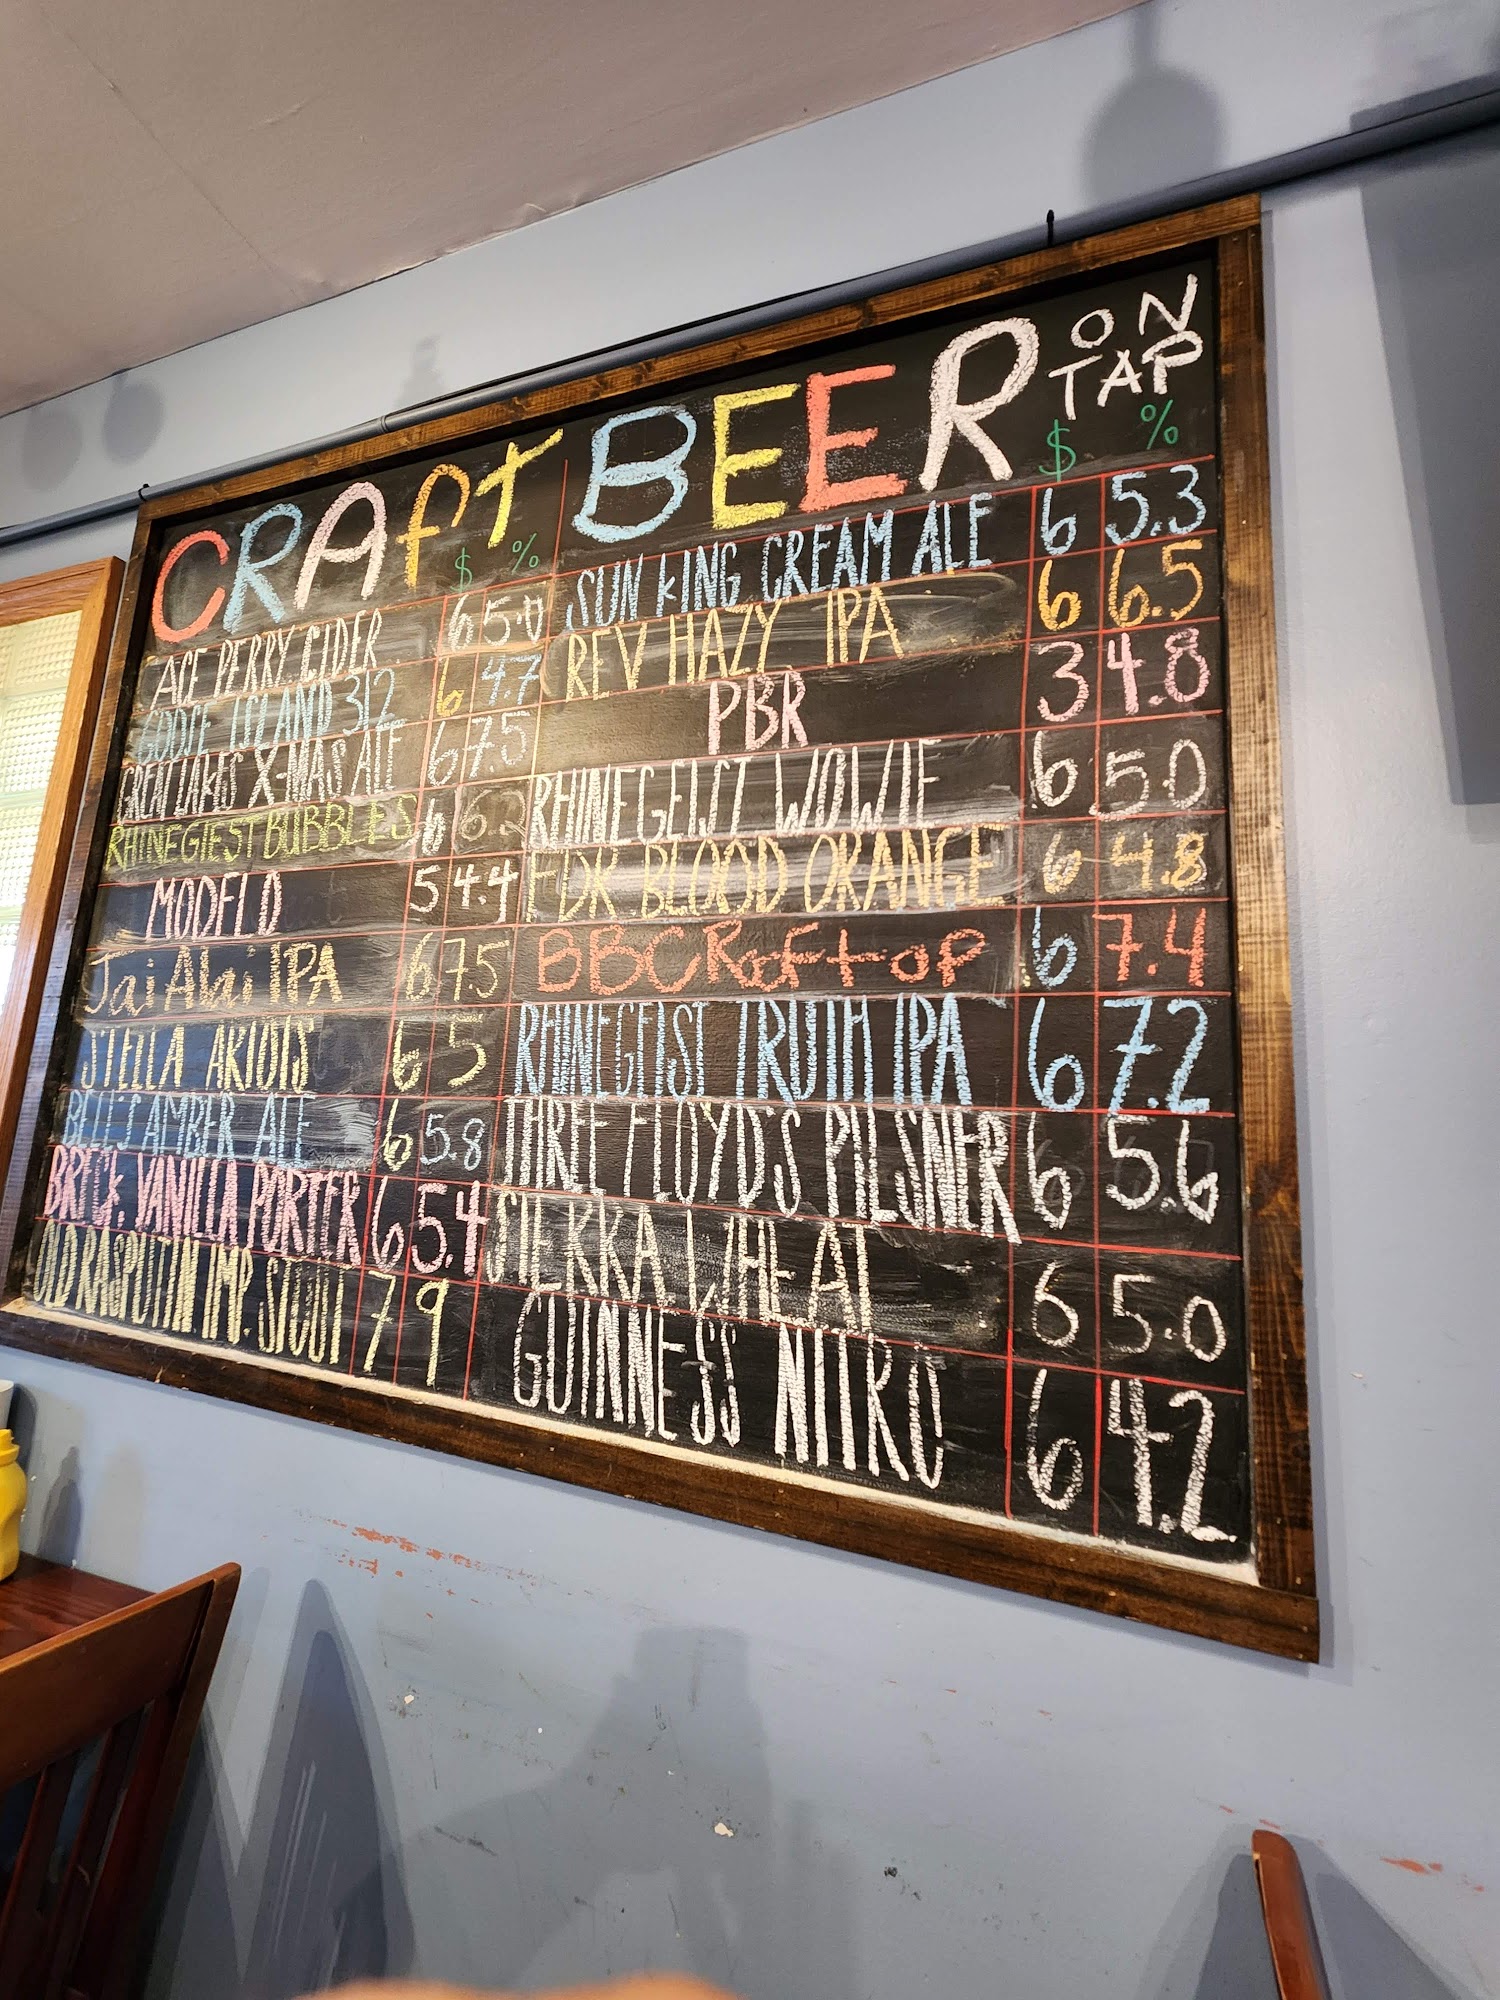 CRAfT BEER ON TAP
$ %
ACE PERRY CIDER 6 5.0
GOOSE ISLAND 312 6 4.7
GREAT LAKES X-MAS ALE 6 7.5
RHINEGIEST BUBBLES 6
MODELO 5 4.4
Jai Alai IPA 6 7.5
STELLA ARTOIS 6 5
BELL'S AMBER ALE 6 5.8
BRECK. VANILLA PORTER 6 5.4
OLD RASPUTIN IMP. STOUT 7 9
$ %
SUN KING CREAM ALE 6 5.3
REV HAZY IPA 6 6.5
PBR 3 4.8
RHINEGEIST WOWIE 6 5.0
BLOOD ORANGE 6 4.8
BBC Rooftop 6 7.4
RHINEGEIST TRUTH IPA 6 7.2
THREE FLOYD'S PILSNER 6 5.6
SIERRA WHEAT 6 5.0
GUINNESS NITRO 6 4.2